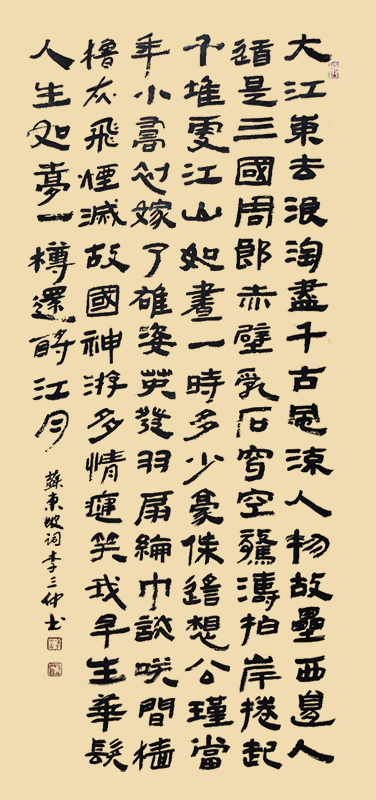 大江東去浪淘盡千古風流人物故壘西邊人
道是三國周郎赤壁亂石穿空驚濤拍岸捲起
千堆雪江山如畫一時多少豪傑遙想公瑾當
年小喬初嫁了雄姿英發羽扇綸巾談笑間檣
櫓灰飛煙滅故國神游多情應笑我早生華髮
人生如夢一樽還酹江月
蘇東坡詞李三仲書